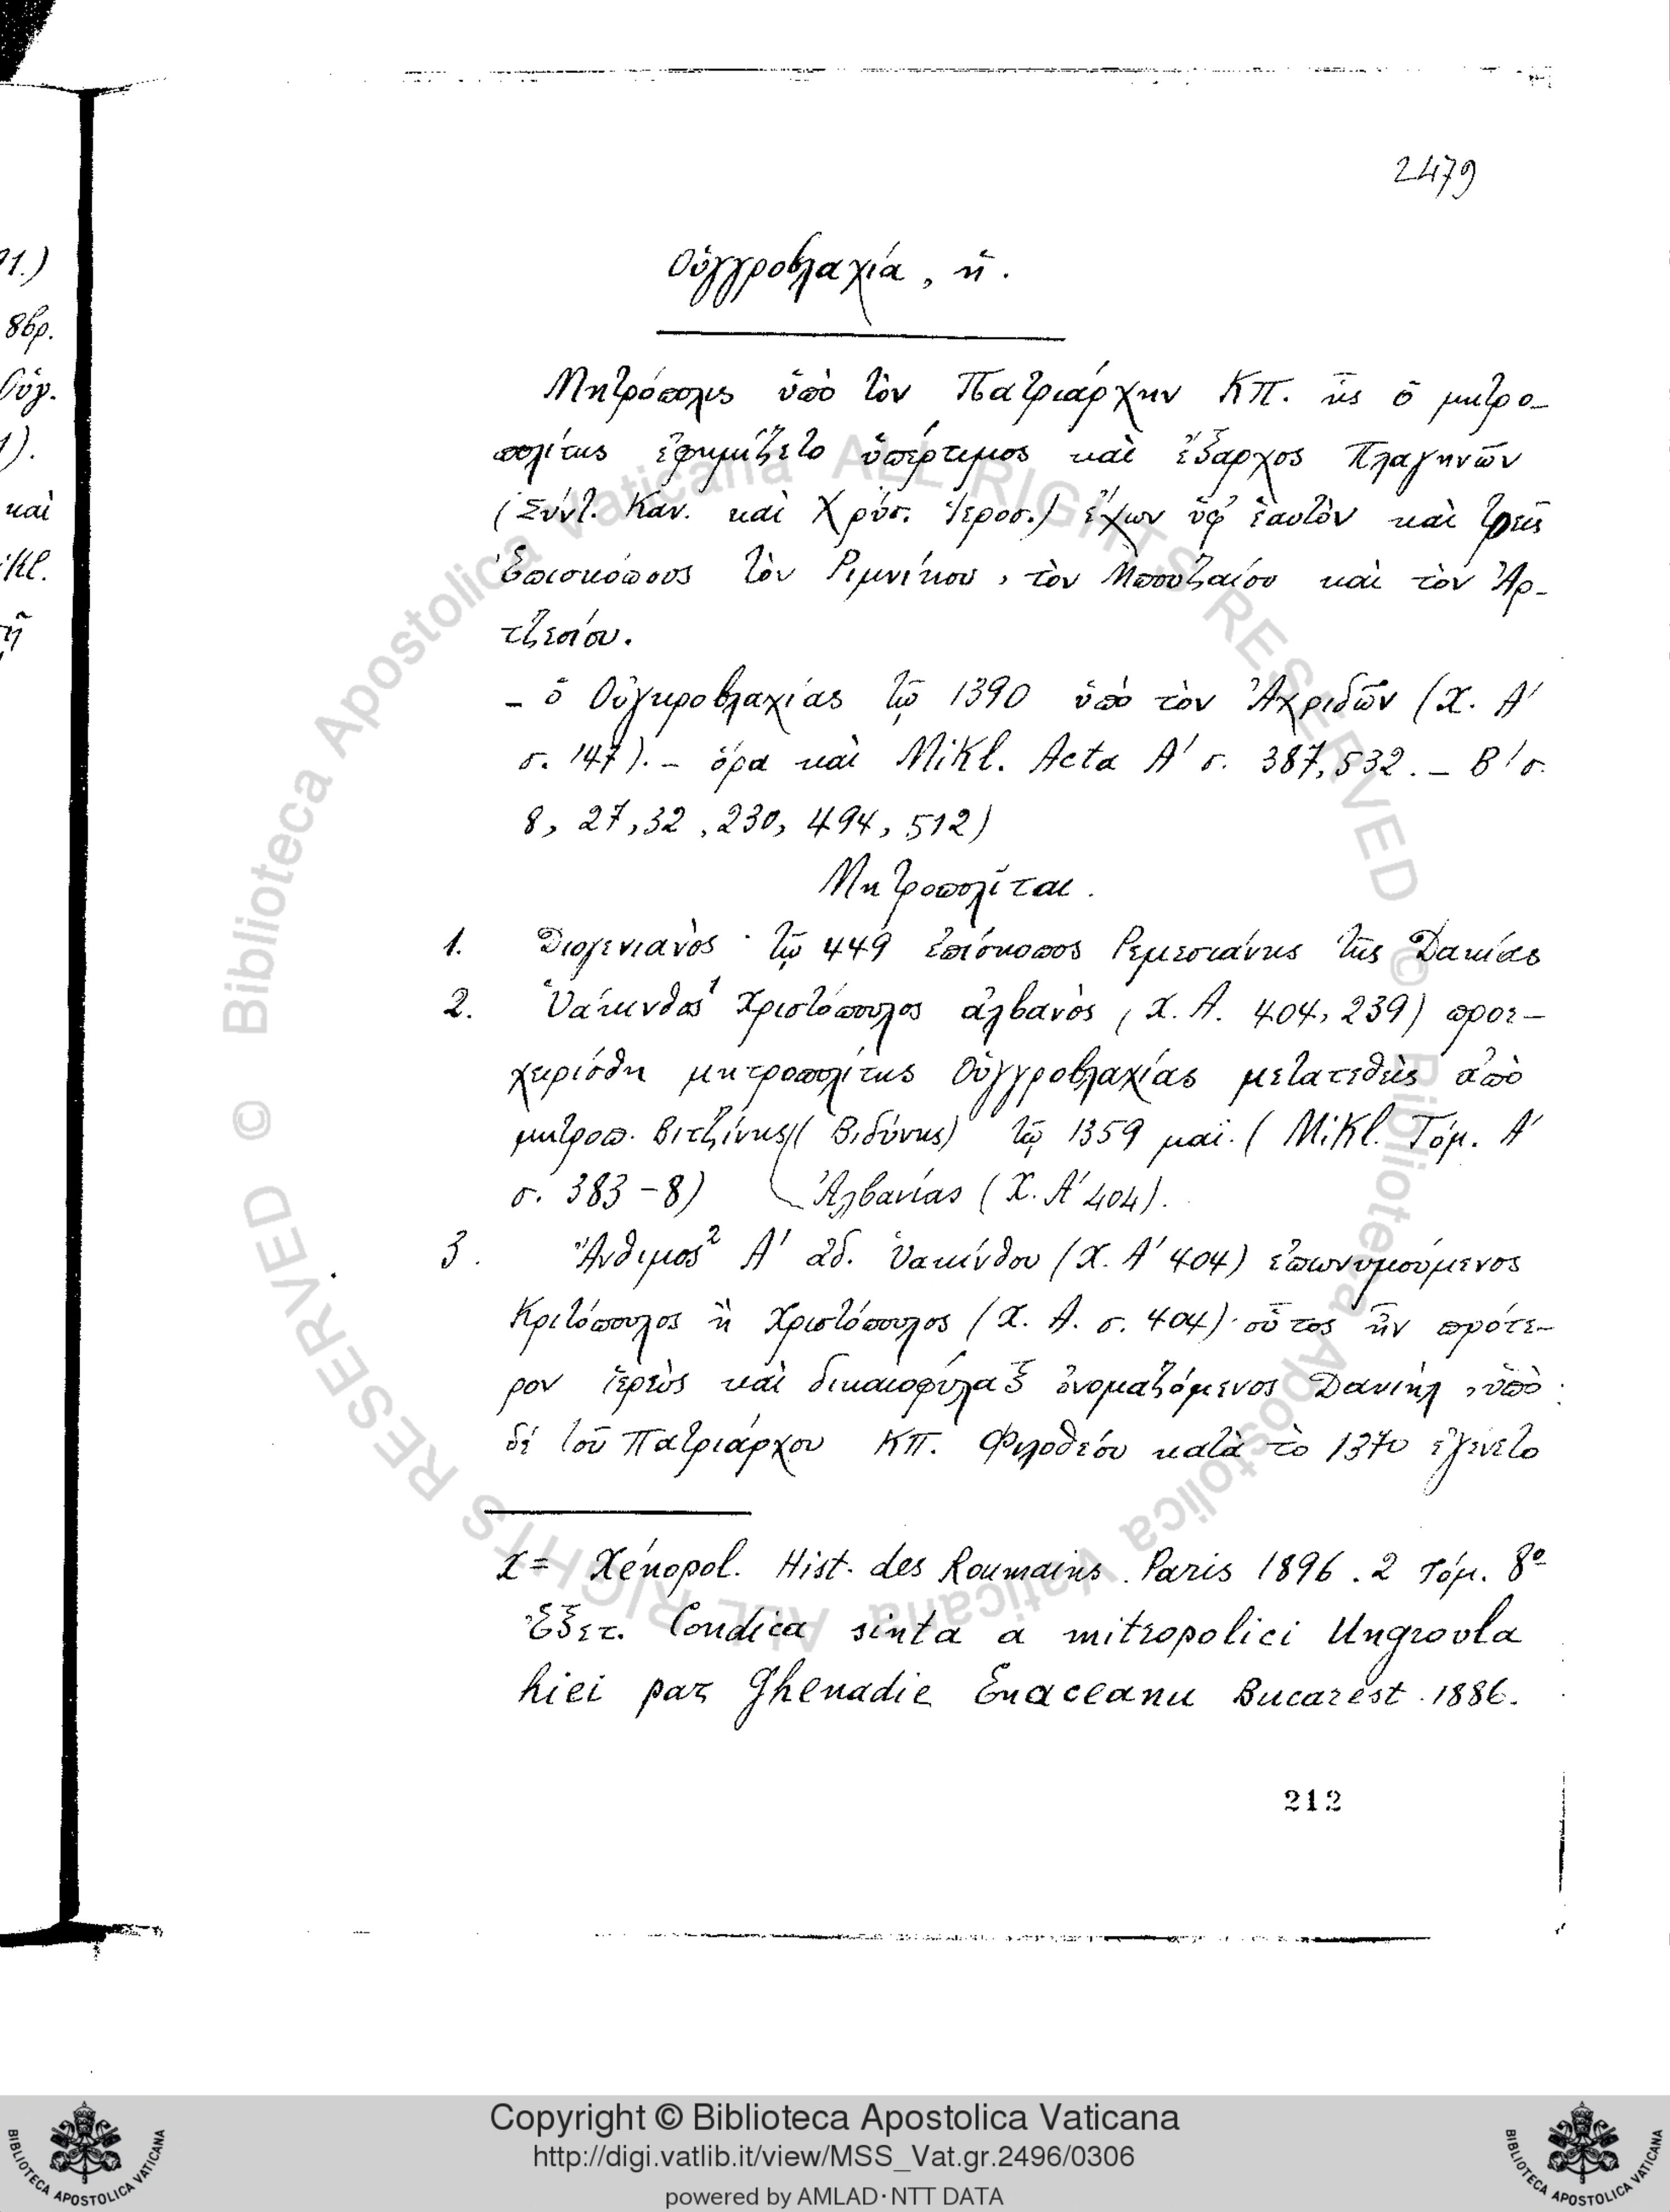 2479
Οὐγγροβλαχία, ἡ.
Μητρόπολις ὑπὸ τὸν Πατριάρχην ΚΠ. ἧς ὁ μητρο-
πολίτης ἐφημίζετο ὑπέρτιμος καὶ ἔξαρχος Πλαγηνῶν
(Σύντ. Καν. καὶ Χρύσ. Ἱεροσ.) ἔχων ὑφ' ἑαυτὸν καὶ τρεῖς
Ἐπισκόπους τὸν Ριμνίκου, τὸν Μπουζαίου καὶ τὸν Ἀρ-
τζεσίου.
- ὁ Οὐγκροβλαχίας τῷ 1390 ὑπὸ τὸν Ἀχριδῶν (Χ. Α'
σ. 147). - ὅρα καὶ Mikl. Acta Α' σ. 387, 532. - Β' σ.
8, 27, 32, 230, 494, 512)
Μητροπολίται.
1. Διογενιανὸς · τῷ 449 ἐπίσκοπος Ρεμεσιάνης τῆς Δακίας
2. Ὑάκινθος¹ Χριστόπουλος ἀλβανὸς, (Χ. Α. 404, 239) προε-
χειρίσθη μητροπολίτης Οὐγγροβλαχίας μετατεθεὶς ἀπὸ
μητροπ. Βιτζίνης (Βιδύνης) τῷ 1359 μαΐ. (Mikl. Τόμ. Α'
σ. 383-8) Ἀλβανίας (Χ. Α' 404).
3. Ἄνθιμος² Α' ἀδ. Ὑακίνθου (Χ. Α' 404) ἐπωνυμούμενος
Κριτόπουλος ἢ Χριστόπουλος (Χ. Α. σ. 404)· οὗτος ἦν πρότε-
ρον ἱερεὺς καὶ δικαιοφύλαξ ὀνομαζόμενος Δανιὴλ, ὑπὸ
δὲ τοῦ Πατριάρχου ΚΠ. Φιλοθέου κατὰ τὸ 1370 ἐγένετο
Χ = Xénopol. Hist. des Roumains. Paris 1896. 2 τόμ. 8º
Ἐξετ. Condica sinta a mitropolici Ungrovla
hiei par Ghenadie Enaceanu Bucarest. 1886.
212
91.)
8βρ.
Οὐγ.
1).
καὶ
ikl.
τῇ
© Biblioteca Apostolica Vaticana ALL RIGHTS RESERVED
© Biblioteca Apostolica Vaticana ALL RIGHTS RESERVED
Copyright © Biblioteca Apostolica Vaticana
http://digi.vatlib.it/view/MSS_Vat.gr.2496/0306
powered by AMLAD·NTT DATA
BIBLIOTECA APOSTOLICA VATICANA
BIBLIOTECA APOSTOLICA VATICANA